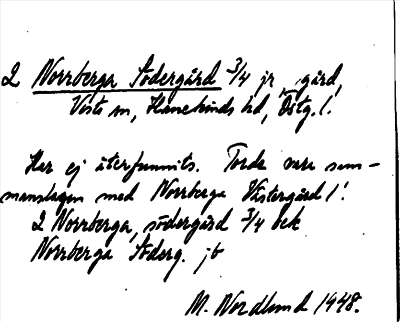 2 Norrberga Södergård 3/4 jr, gård,
Västo sn, Hanekinds hd, Östg. l.
Har ej återfunnits. Torde vara sam-
manslagen med Norrberga Västergård 1!
2 Norrberga, södergård 3/4 bek
Norrberga Söderg. jb
M. Nordlund 1948.